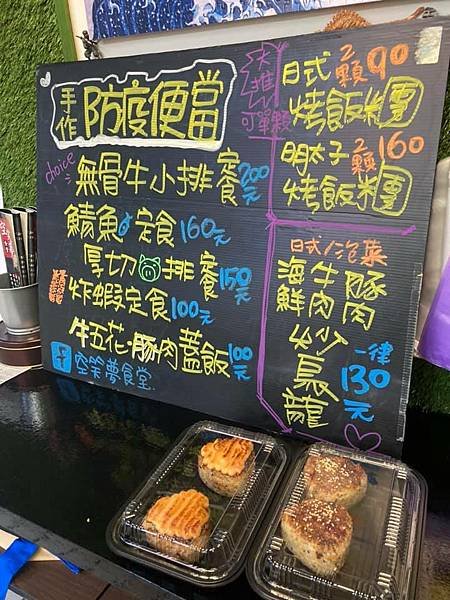 手作
防疫便當
choice
無骨牛小排餐 200元
鯖魚定食 160元
厚切排餐 150元
炸蝦定食 100元
牛五花·豚肉蓋飯 100元
空笑夢食堂
大推
可單顆
日式 2顆 90
烤飯糰
明太子 2顆 160
烤飯糰
日式/泡菜
海鮮 牛肉 豚肉
炒烏龍
一律
130元